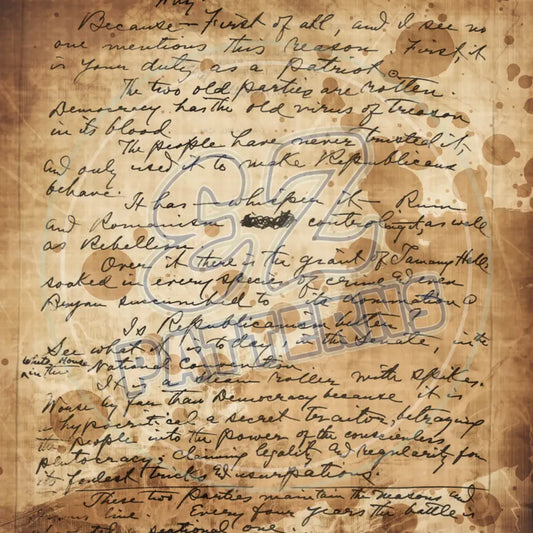 Why.
Because - First of all, and I see no
one mentions this reason First, it
is your duty as a Patriot.
The two old parties are rotten.
Democracy has the old virus of treason
in its blood.
The people have never trusted it,
and only used it to make Republicans
behave.
It has - whisper it - Rum
and Romanism controlling it as well
as Rebellion.
Over it there is the giant of Tammany Hall
soaked in every species of crime and even
Bryan succumbed to its domination
Is Republicanism better?
See what it is to day, in the Senate, in the
White House
in the National Convention.
It is a steam roller with spikes.
Worse by far than Democracy because it is
hypocritical a secret traitor, betraying
the people into the power of the conscienceless
plutocracy; claiming legality and regularity for
its foulest tricks & usurpations.
These two parties maintain the reasons and
line. Every four years the battle is
a sectional one.
EZ
PATTERNS